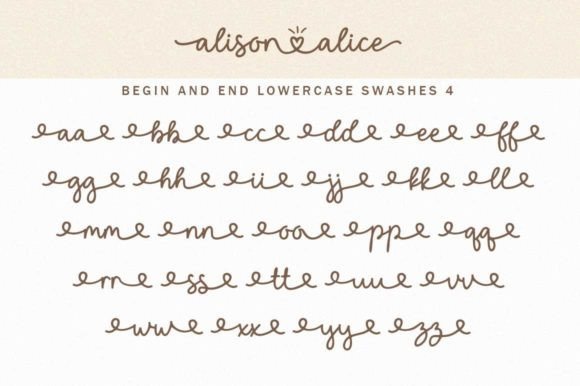 alison alice
BEGIN AND END LOWERCASE SWASHES 4
aa bb cc dd ee ff
gg hh ii jj kk ll
mm nn oo pp qq
rr ss tt uu vv
ww xx yy zz